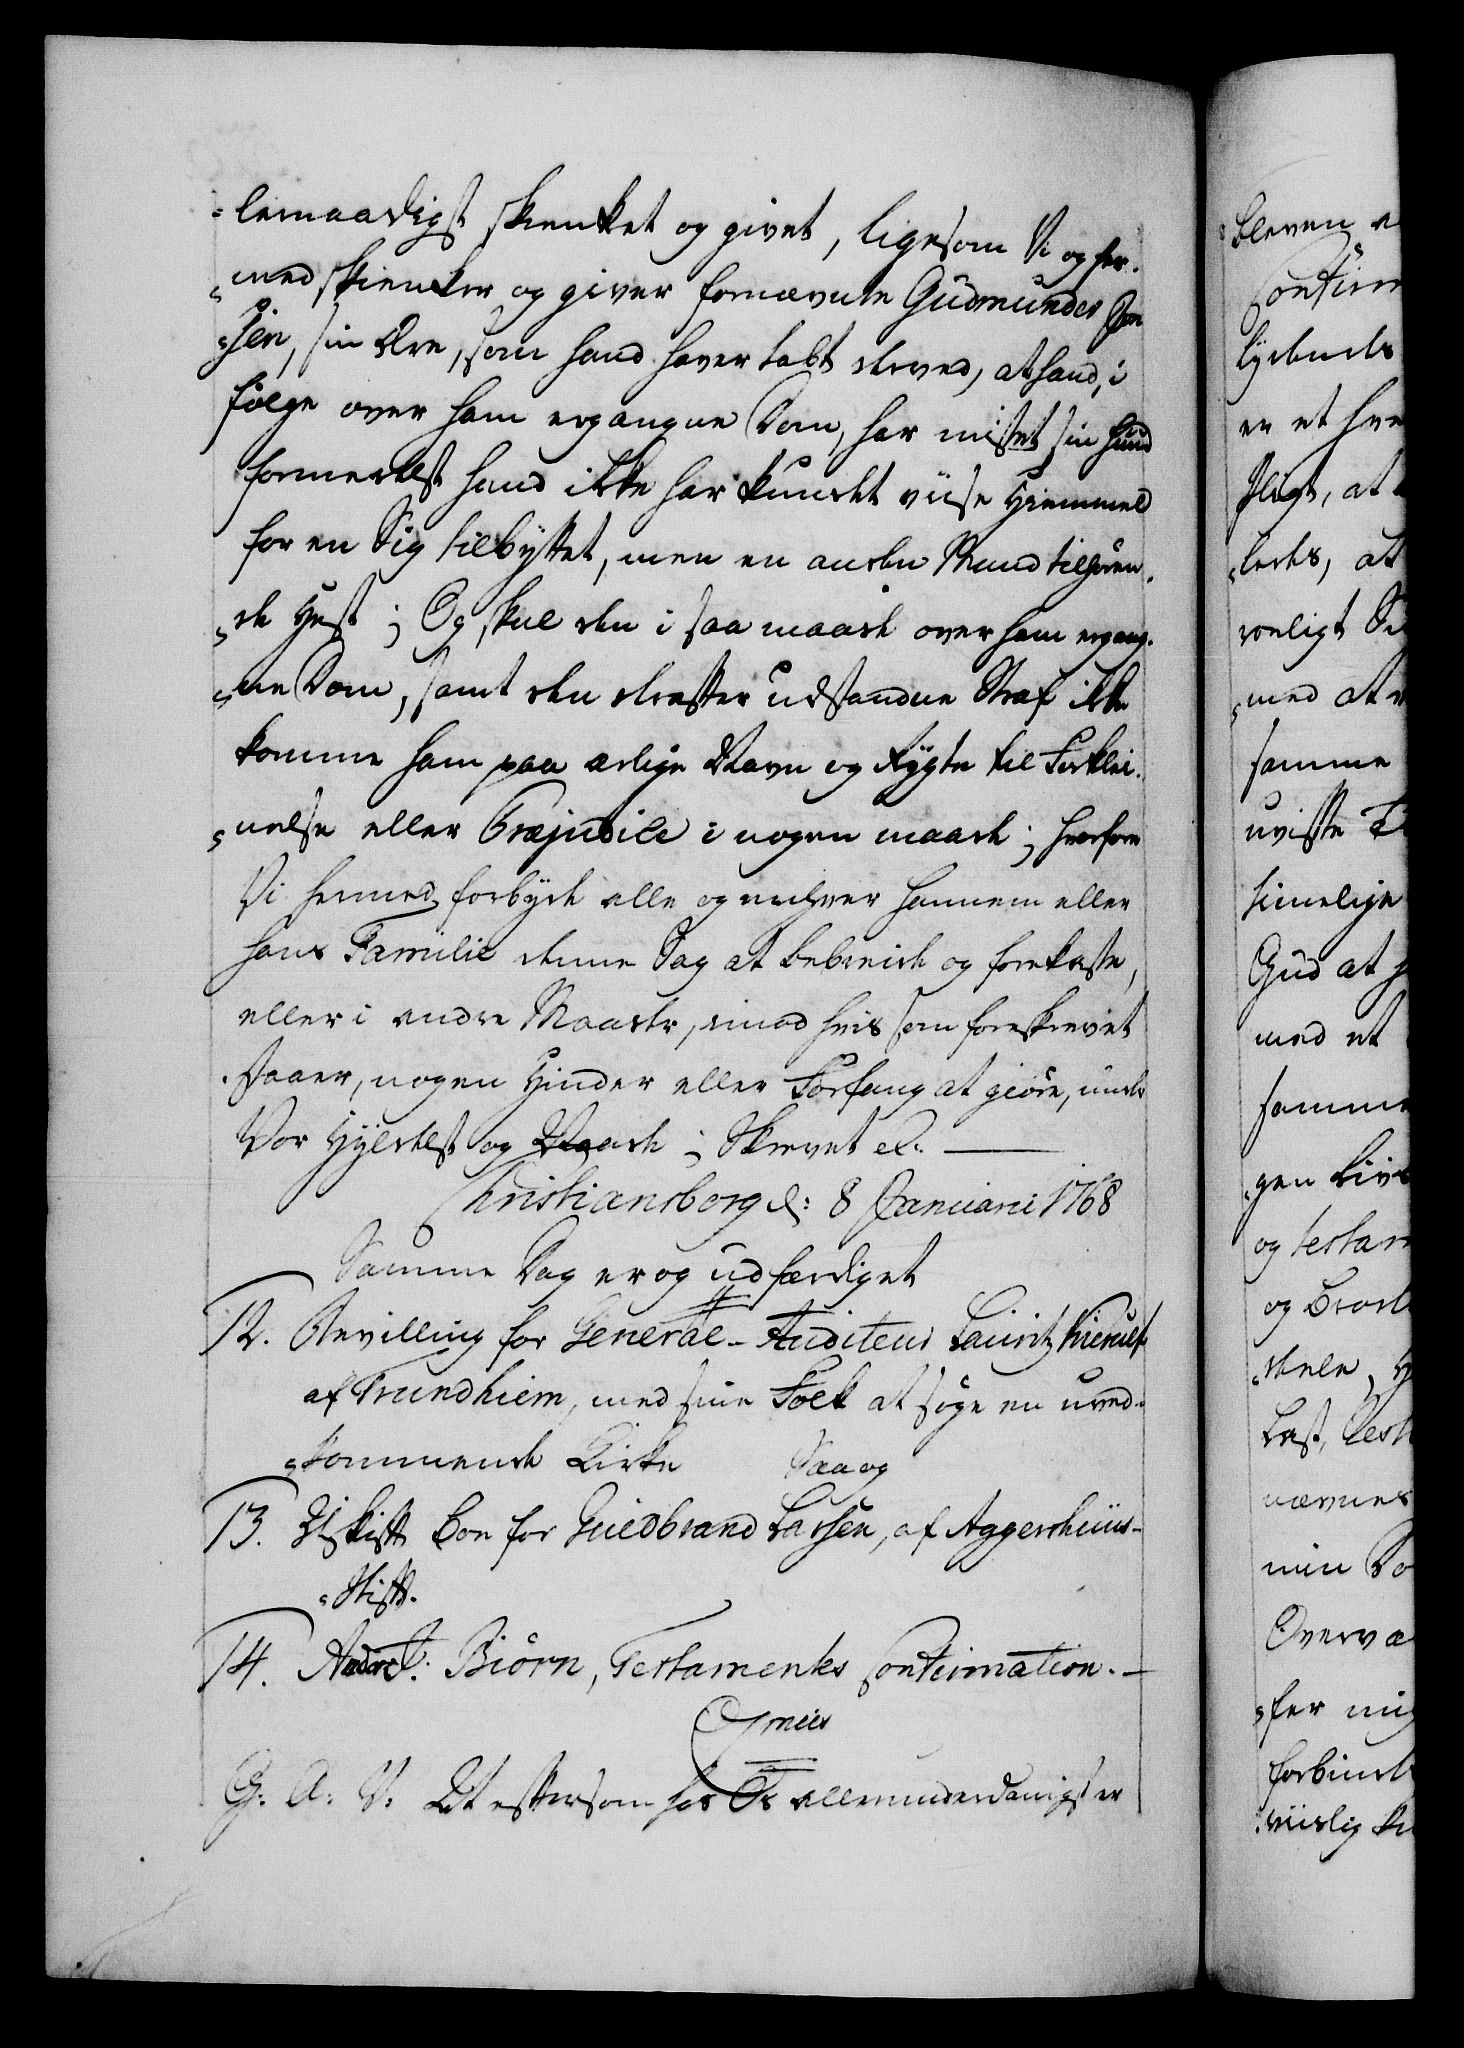 =lernaadigst skienket og givet, ligesom Vi og her-
=med skienker og giver fornævnte Gudmunder Jon
=sen, sin Ære, som hand haver tabt derved, at hand, i
følge over ham ergangne Dom, har mistet sin Hud
formedelst hand ikke har kundet viise Hiemmel
for en Sig tilbyttet, men en anden Mand tilhøren-
=de Hest; Og skal den i saa maade over ham ergang-
=ne Dom, samt den derefter udstandne Straf ikke
komme ham paa ærlige Navn og Rygte til Forklei-
=nelse eller Præjudice i nogen maade; hvorfore
Vi hermed forbyde alle og enhver hannem eller
hans Familie denne Sag at bebreide og forekaste,
eller i andre Maader, imod hvis som foreskrevet
staaer, nogen Hinder eller Forfang at giøre, under
Vor Hyldest og Naade; Skrevet etc.
Christiansborg d: 8 Januarii 1768
Samme Dag er og udfærdiget
12. Bevilling for General-Auditeur Lauritz Kierulf
af Trundhiem, med sine Folk at søge en uved-
=kommende Kirke Saa og
13. Uskift Boe for Guldbrand Larsen, af Aggershuus-
=Stift.
14. Andr: Biørn, Testaments Confirmation.
G: A: V: At eftersom hos Os allerunderdanigst er
bleven
Confirm
er et hv
Pligt, at
=ledes, at
=med at
samme
uviste
timelige
Gud at
med et
samme
og testam
nævnes
min